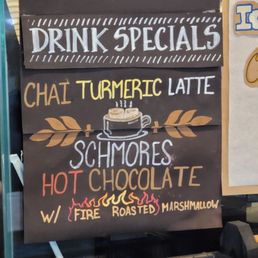 DRINK SPECIALS
CHAI TURMERIC LATTE
SCHMORES
HOT CHOCOLATE
W/ {FIRE ROASTED} MARSHMALLOW